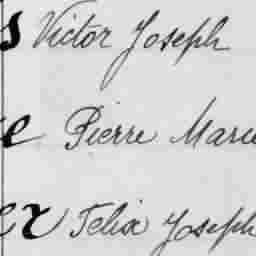 s Victor Joseph
e Pierre Marie
er Felix Joseph